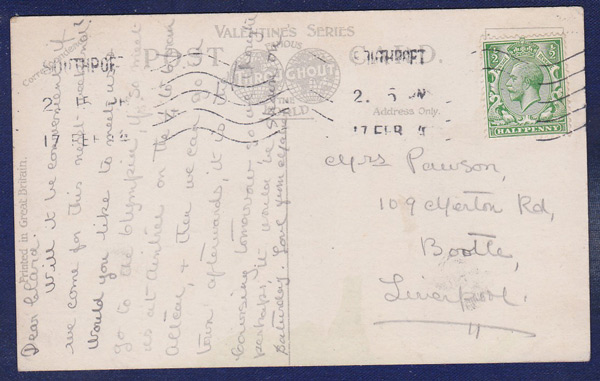 VALENTINE'S SERIES
FAMOUS
THROUGHOUT
THE
WORLD.
POST CARD.
Correspondence.
Address Only.
Printed in Great Britain.
SOUTHPORT
2.
17 FEB
SOUTHPORT
2.
17 FEB
½ ½
HALFPENNY
Dear Clara.
Will it be convenient if
we come for this next weekend?
Would you like to meet us &
go to the Olympia, if so meet
us at Aintree on the
& then we can go in
town, afterwards, it is the
Coursing tomorrow so we
perhaps, it would be
Saturday. Love from
Mrs Pawson,
109 Merton Rd,
Bootle,
Liverpool.